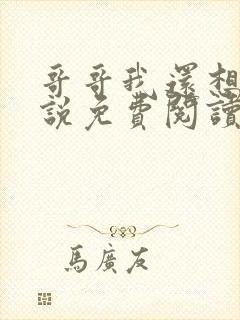 哥哥我還想
說免費閱讀
馬廣友